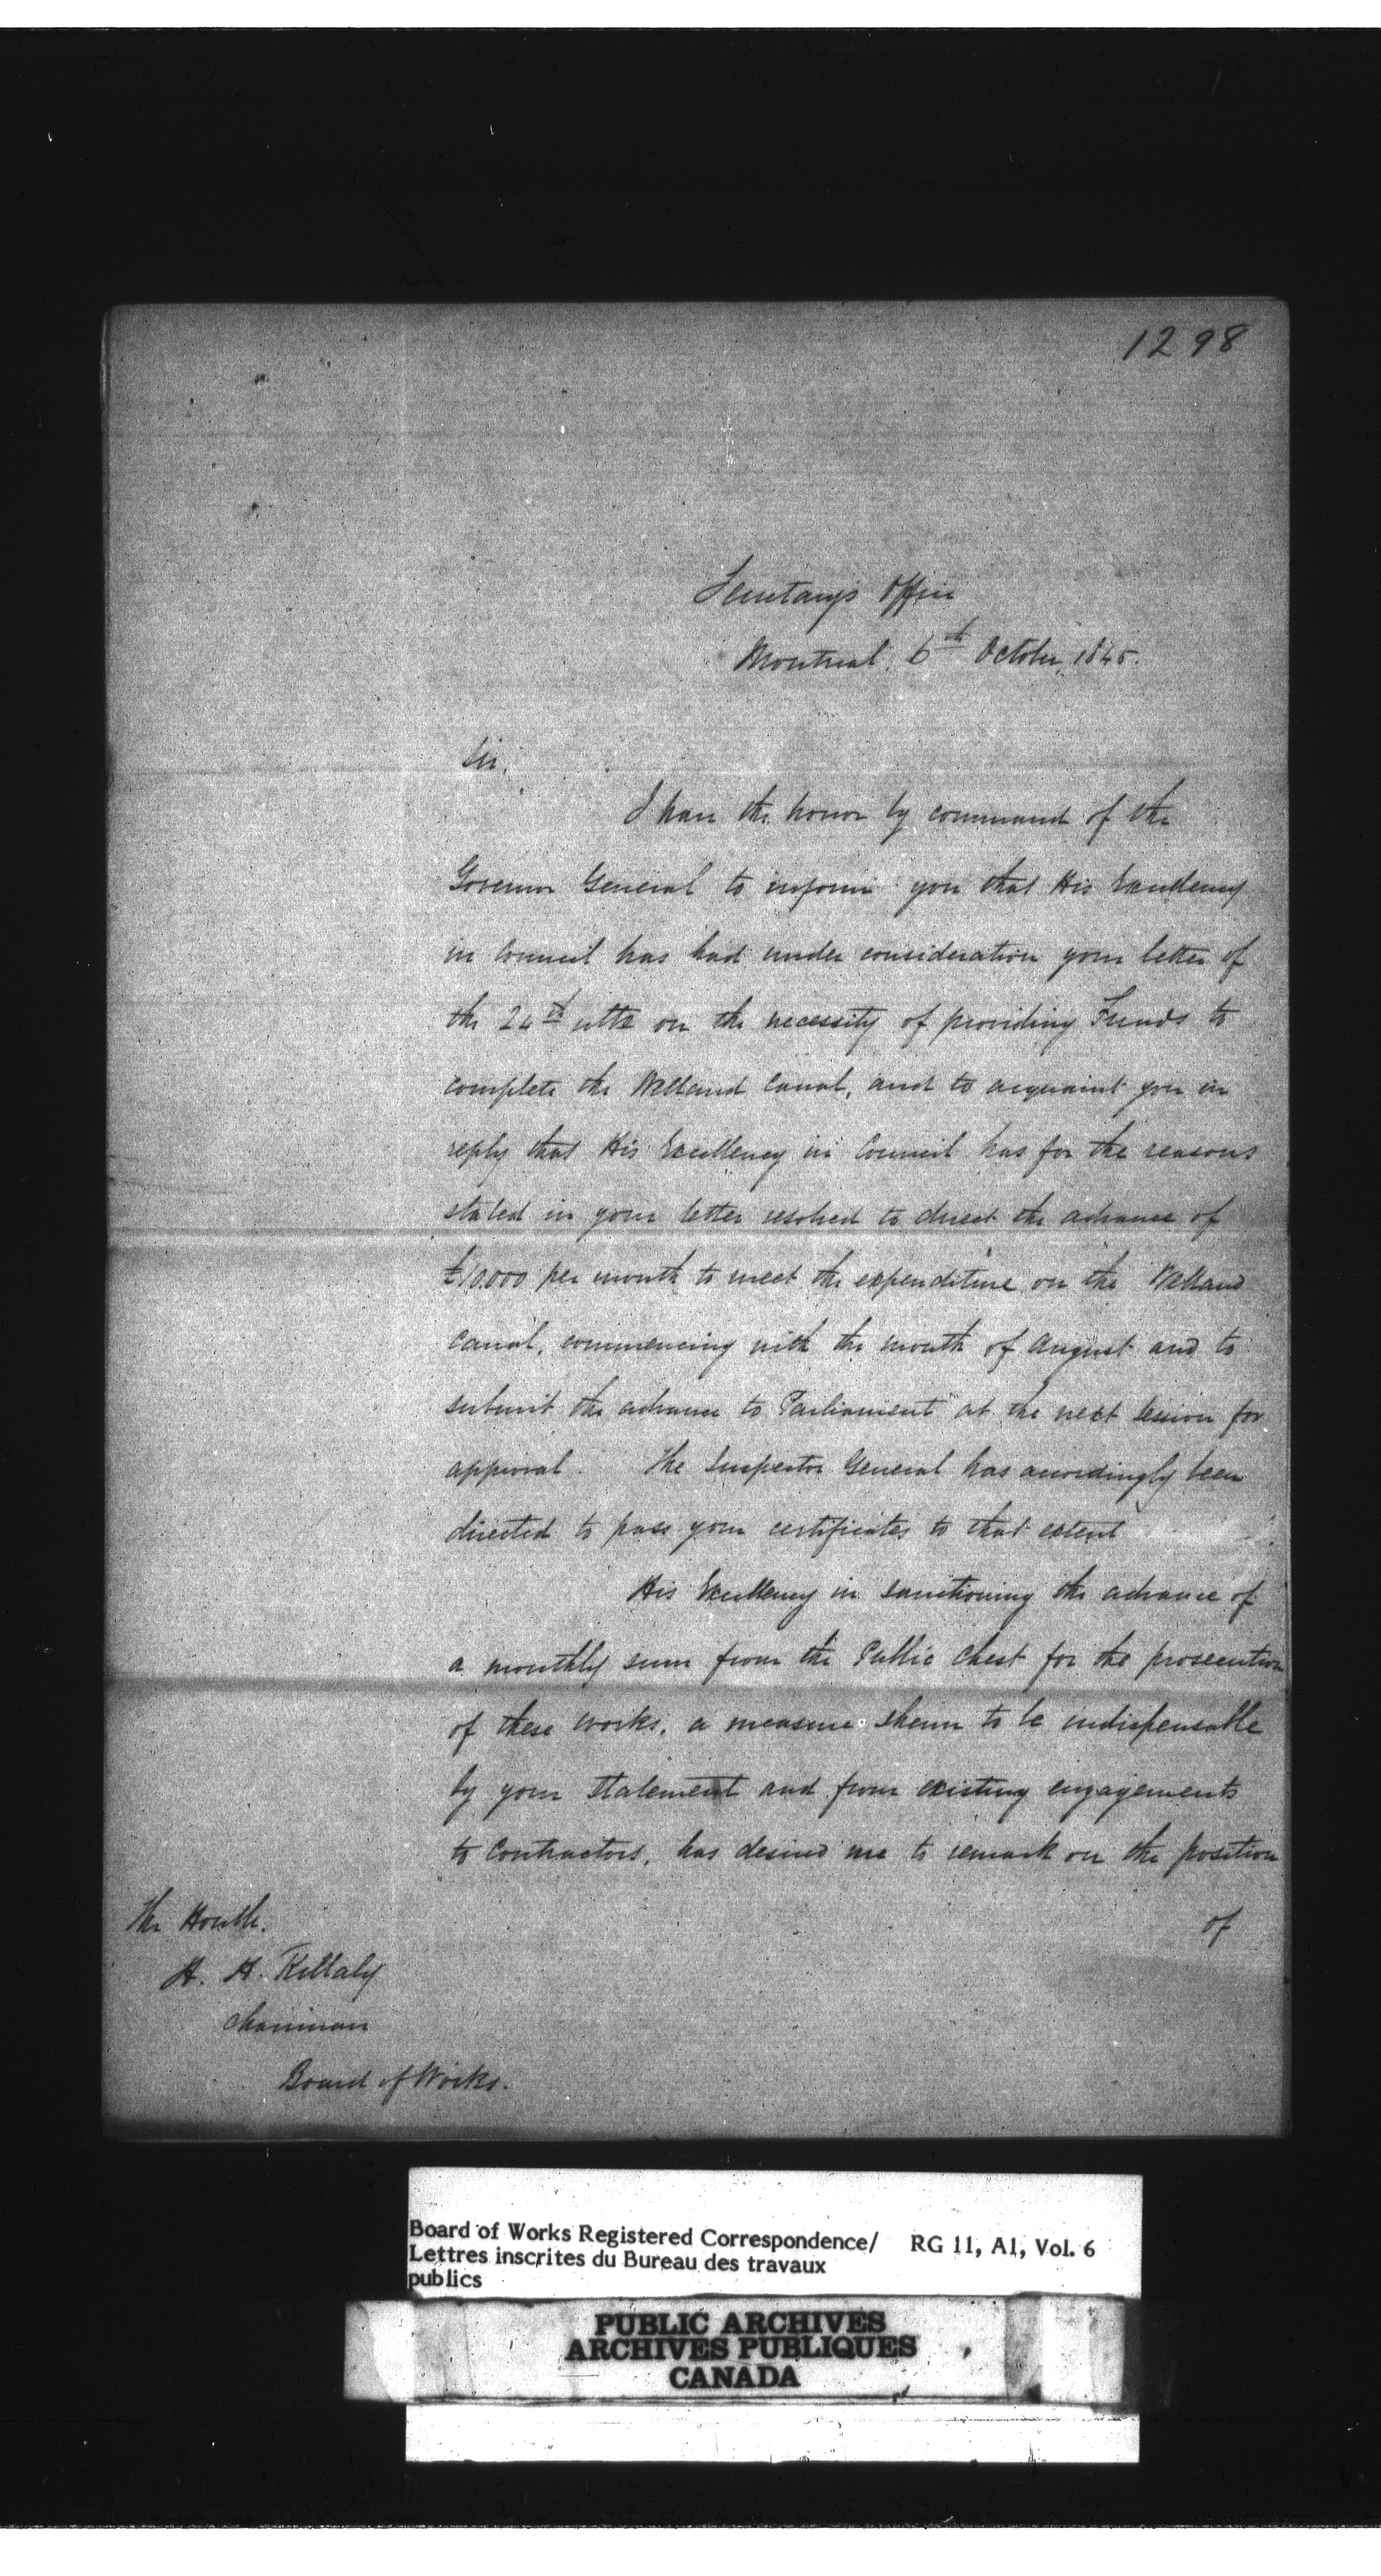 1298
Secretary's Office
Montreal, 6th October, 1845.
Sir,
I have the honor by command of the
Governor General to inform you that His Excellency
in Council has had under consideration your letter of
the 24th ulto on the necessity of providing Funds to
complete the Welland Canal, and to acquaint you in
reply that His Excellency in Council has for the reasons
stated in your letter resolved to direct the advance of
£10,000 per month to meet the expenditure on the Welland
Canal, commencing with the month of August and to
submit the advance to Parliament at the next Session for
approval. The Inspector General has accordingly been
directed to pass your certificates to that extent
His Excellency in sanctioning the advance of
a monthly sum from the Public Chest for the prosecution
of these works, a measure shewn to be indispensable
by your statement and from existing engagements
to Contractors, has desired me to remark on the position
of
The Honble.
H. H. Killaly
Chairman
Board of Works.
Board of Works Registered Correspondence/ RG 11, A1, Vol. 6
Lettres inscrites du Bureau des travaux
publics
PUBLIC ARCHIVES
ARCHIVES PUBLIQUES
CANADA